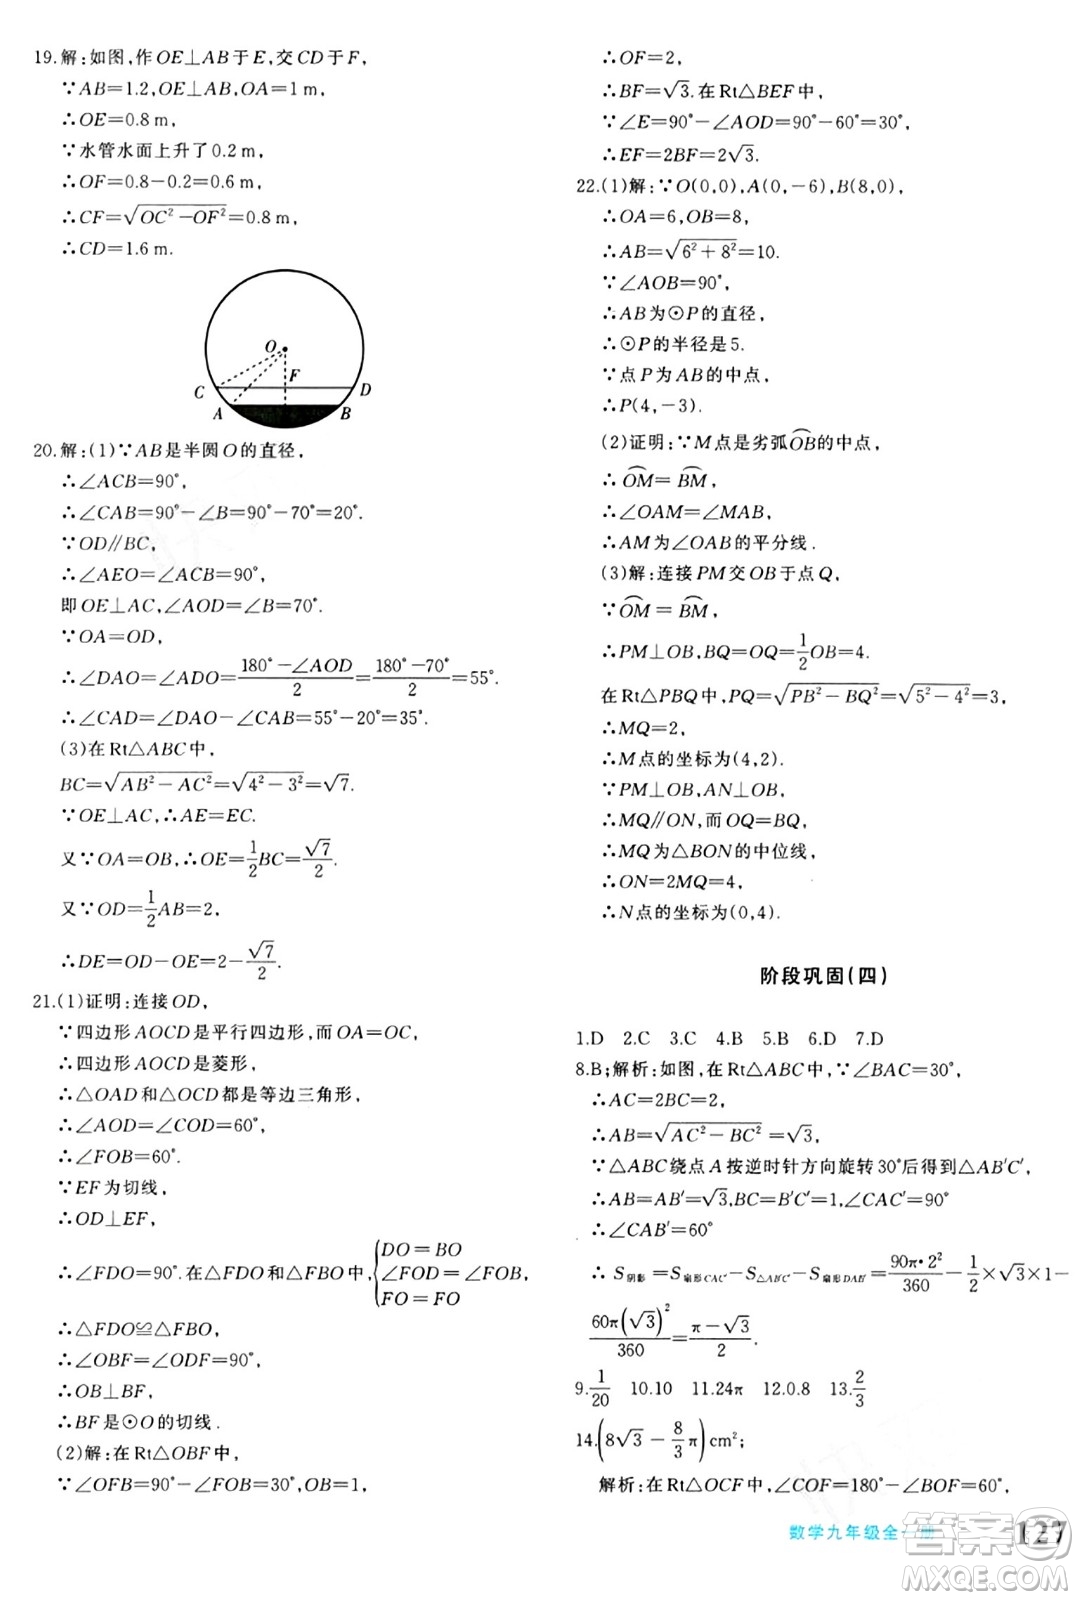 19.解:如图,作OE⊥AB于E,交CD于F,
∵AB=1.2,OE⊥AB,OA=1 m,
∴OE=0.8 m,
∵水管水面上升了0.2 m,
∴OF=0.8-0.2=0.6 m,
∴CF=√(OC²-OF²)=0.8 m,
∴CD=1.6 m.
O
F
C D
A B
20.解:(1)∵AB是半圆O的直径,
∴∠ACB=90°,
∴∠CAB=90°-∠B=90°-70°=20°.
∵OD∥BC,
∴∠AEO=∠ACB=90°,
即OE⊥AC,∠AOD=∠B=70°.
∵OA=OD,
∴∠DAO=∠ADO=(180°-∠AOD)/2=(180°-70°)/2=55°.
∴∠CAD=∠DAO-∠CAB=55°-20°=35°.
(3)在Rt△ABC中,
BC=√(AB²-AC²)=√(4²-3²)=√7.
∵OE⊥AC,∴AE=EC.
又∵OA=OB,∴OE=1/2BC=√7/2.
又∵OD=1/2AB=2,
∴DE=OD-OE=2-√7/2.
21.(1)证明:连接OD,
∵四边形AOCD是平行四边形,而OA=OC,
∴四边形AOCD是菱形,
∴△OAD和△OCD都是等边三角形,
∴∠AOD=∠COD=60°,
∴∠FOB=60°.
∵EF为切线,
∴OD⊥EF,
∴∠FDO=90°.在△FDO和△FBO中,{DO=BO
∠FOD=∠FOB,
FO=FO
∴△FDO≌△FBO,
∴∠OBF=∠ODF=90°,
∴OB⊥BF,
∴BF是⊙O的切线.
(2)解:在Rt△OBF中,
∵∠OFB=90°-∠FOB=30°,OB=1,
∴OF=2,
∴BF=√3.在Rt△BEF中,
∵∠E=90°-∠AOD=90°-60°=30°,
∴EF=2BF=2√3.
22.(1)解:∵O(0,0),A(0,-6),B(8,0),
∴OA=6,OB=8,
∴AB=√(6²+8²)=10.
∵∠AOB=90°,
∴AB为⊙P的直径,
∴⊙P的半径是5.
∵点P为AB的中点,
∴P(4,-3).
(2)证明:∵M点是劣弧OB⌒的中点,
∴OM⌒=BM⌒,
∴∠OAM=∠MAB,
∴AM为∠OAB的平分线.
(3)解:连接PM交OB于点Q,
∵OM⌒=BM⌒,
∴PM⊥OB,BQ=OQ=1/2OB=4.
在Rt△PBQ中,PQ=√(PB²-BQ²)=√(5²-4²)=3,
∴MQ=2,
∴M点的坐标为(4,2).
∵PM⊥OB,AN⊥OB,
∴MQ∥ON,而OQ=BQ,
∴MQ为△BON的中位线,
∴ON=2MQ=4,
∴N点的坐标为(0,4).
阶段巩固(四)
1.D 2.C 3.C 4.B 5.B 6.D 7.D
8.B;解析:如图,在Rt△ABC中,∵∠BAC=30°,
∴AC=2BC=2,
∴AB=√(AC²-BC²)=√3,
∵△ABC绕点A按逆时针方向旋转30°后得到△AB′C′,
∴AB=AB′=√3,BC=B′C′=1,∠CAC′=90°
∴∠CAB′=60°
∴S阴影=S扇形CAC′-S△AB′C′-S扇形DAB′=90π·2²/360-1/2×√3×1-
60π(√3)²/360=(π-√3)/2.
9.1/20 10.10 11.24π 12.0.8 13.2/3
14.(8√3-8/3π)cm²;
解析:在Rt△OCF中,∠COF=180°-∠BOF=60°,
数学九年级全一册 127
答案圈
MXQE.COM